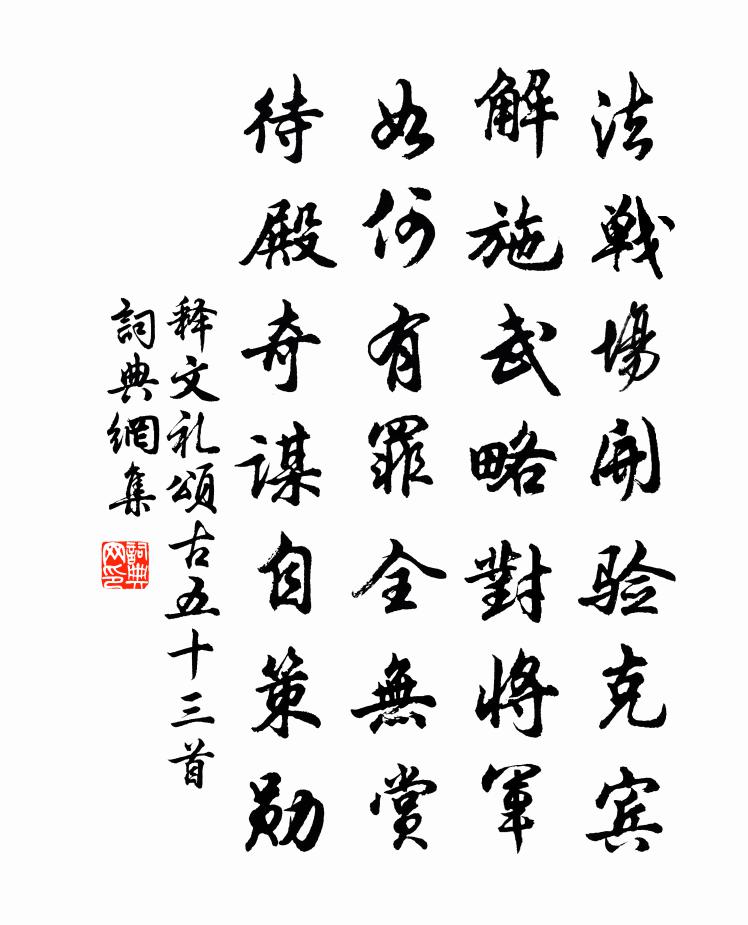 法戰場開验克宾
解施武略對將軍
如何有罪全無赏
待殿奇謀自策勋
释文礼頌古五十三首
詞典網集
詞典网印